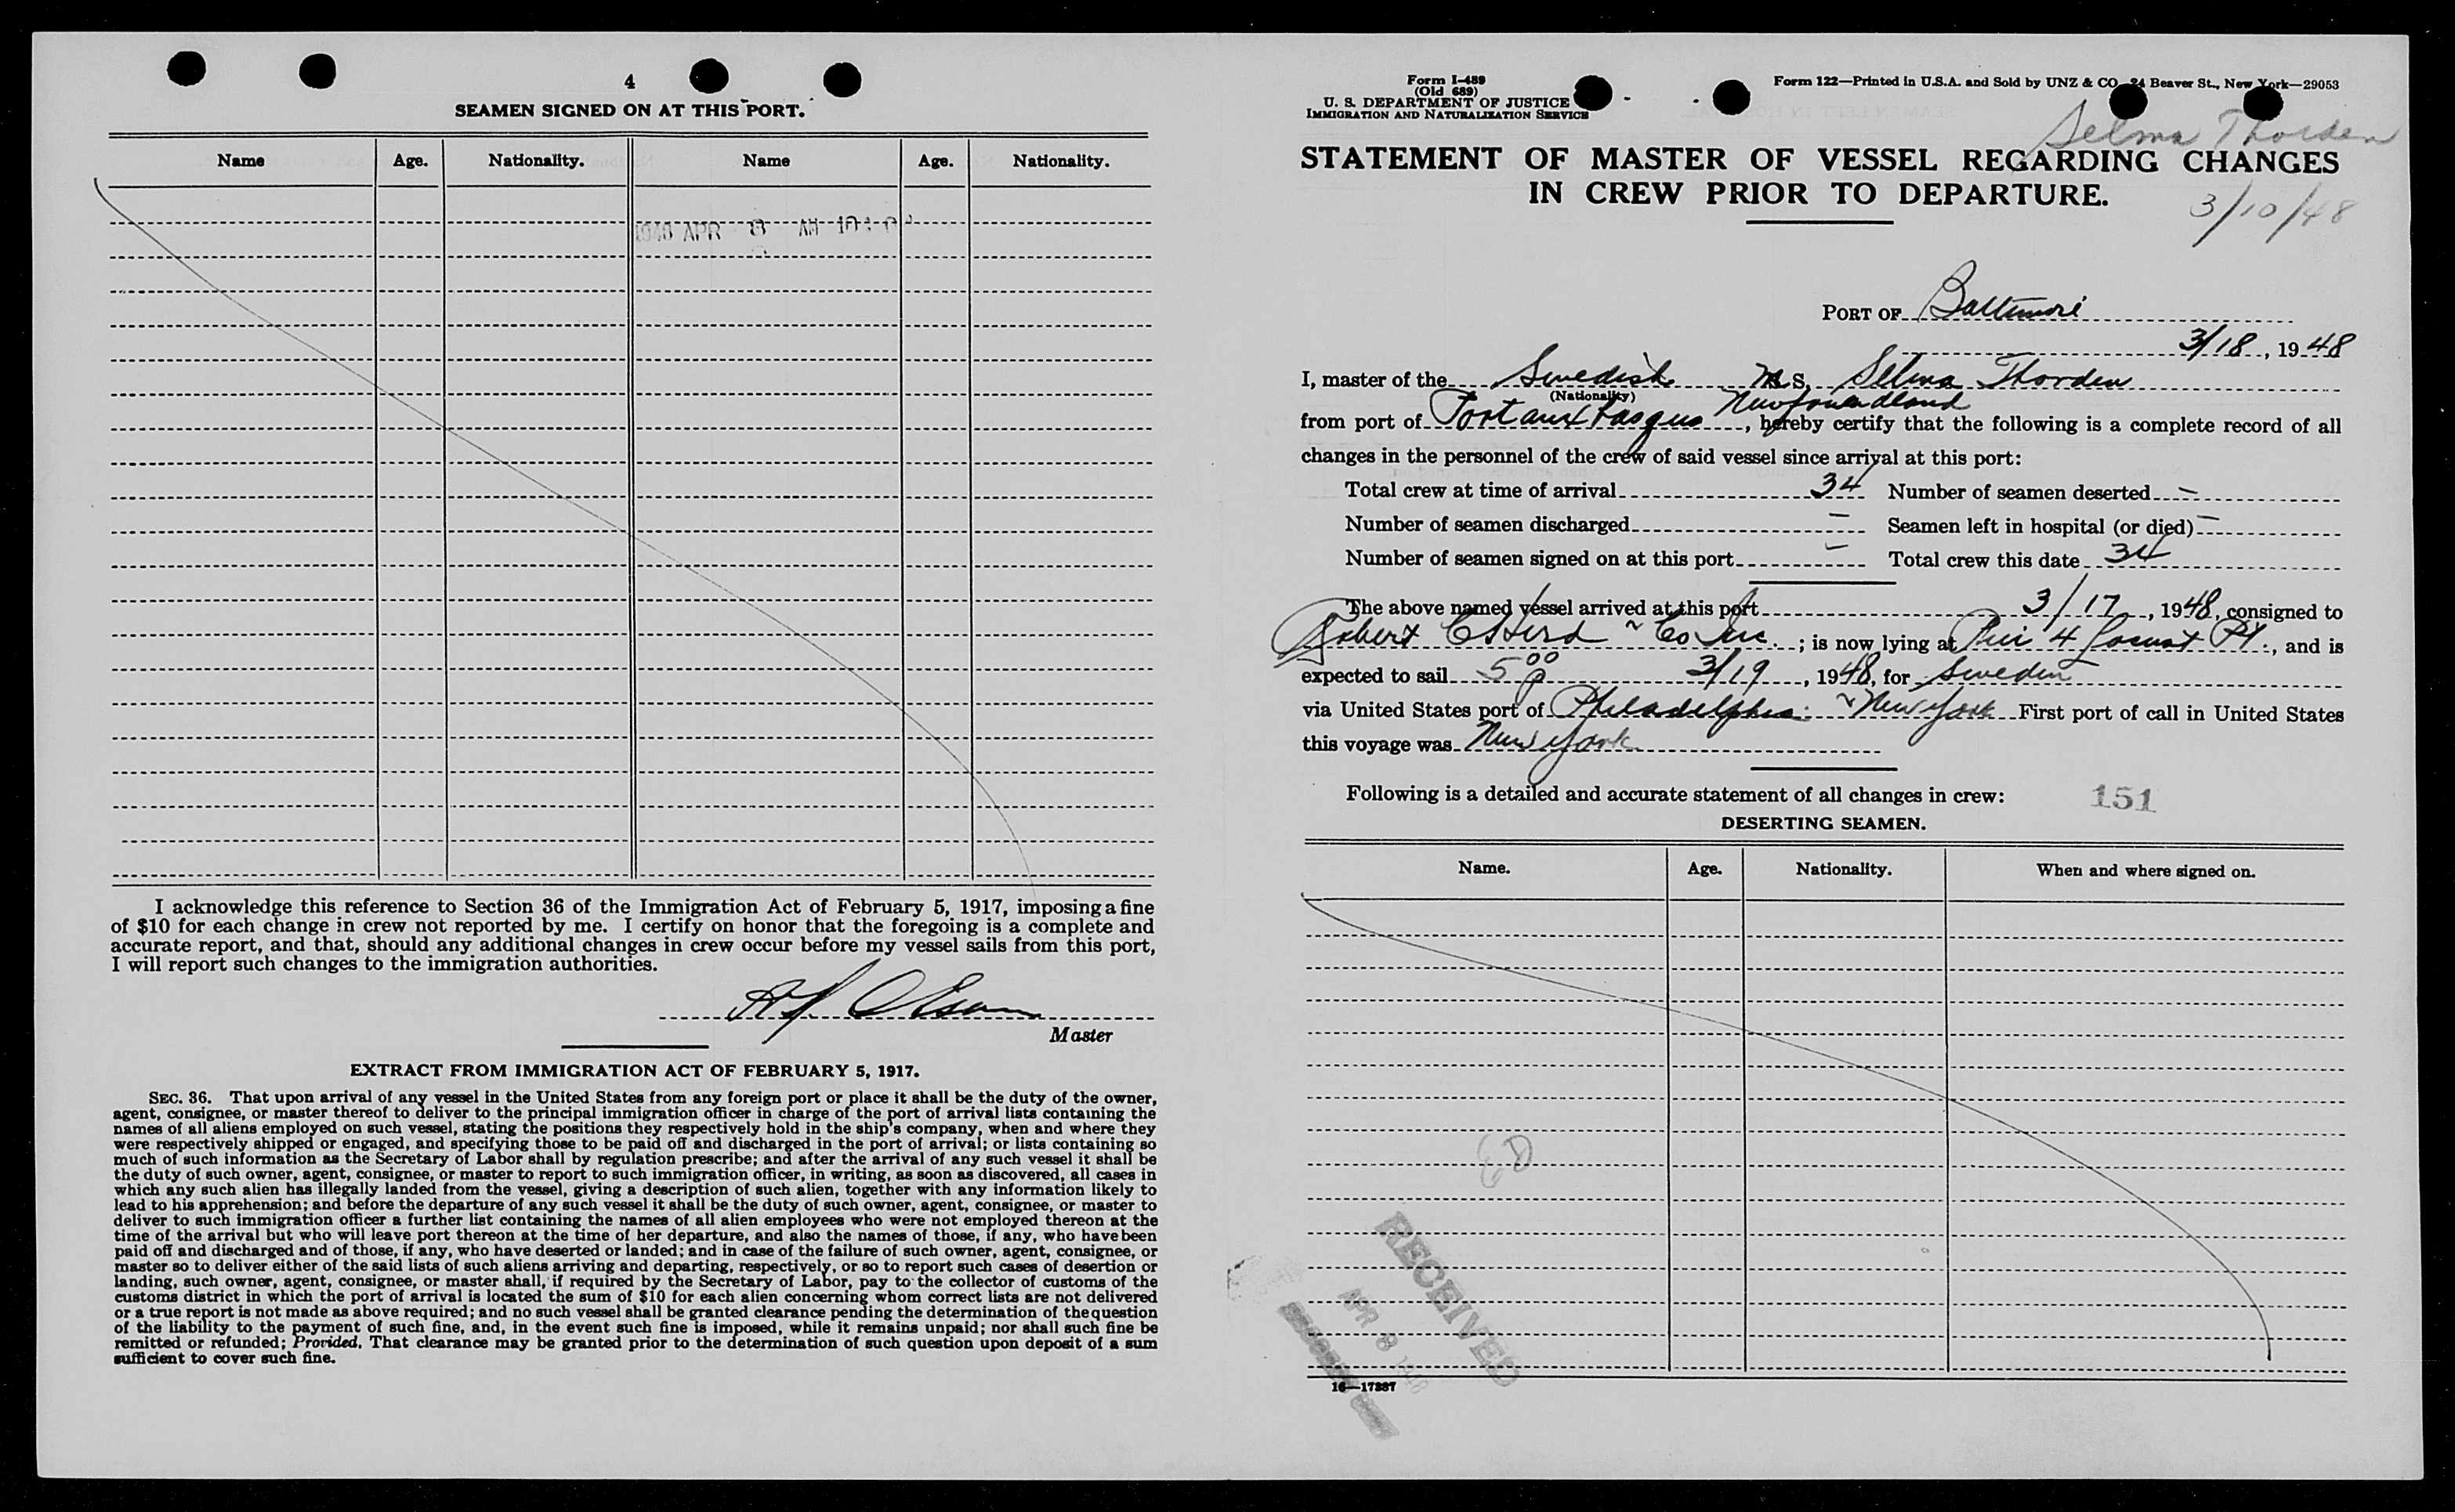 4
SEAMEN SIGNED ON AT THIS PORT.
Name Age. Nationality. Name Age. Nationality.
1948 APR 8 AM
I acknowledge this reference to Section 36 of the Immigration Act of February 5, 1917, imposing a fine
of $10 for each change in crew not reported by me. I certify on honor that the foregoing is a complete and
accurate report, and that, should any additional changes in crew occur before my vessel sails from this port,
I will report such changes to the immigration authorities.
Olsson
Master
EXTRACT FROM IMMIGRATION ACT OF FEBRUARY 5, 1917.
SEC. 36. That upon arrival of any vessel in the United States from any foreign port or place it shall be the duty of the owner,
agent, consignee, or master thereof to deliver to the principal immigration officer in charge of the port of arrival lists containing the
names of all aliens employed on such vessel, stating the positions they respectively hold in the ship's company, when and where they
were respectively shipped or engaged, and specifying those to be paid off and discharged in the port of arrival; or lists containing so
much of such information as the Secretary of Labor shall by regulation prescribe; and after the arrival of any such vessel it shall be
the duty of such owner, agent, consignee, or master to report to such immigration officer, in writing, as soon as discovered, all cases in
which any such alien has illegally landed from the vessel, giving a description of such alien, together with any information likely to
lead to his apprehension; and before the departure of any such vessel it shall be the duty of such owner, agent, consignee, or master to
deliver to such immigration officer a further list containing the names of all alien employees who were not employed thereon at the
time of the arrival but who will leave port thereon at the time of her departure, and also the names of those, if any, who have been
paid off and discharged and of those, if any, who have deserted or landed; and in case of the failure of such owner, agent, consignee, or
master so to deliver either of the said lists of such aliens arriving and departing, respectively, or so to report such cases of desertion or
landing, such owner, agent, consignee, or master shall, if required by the Secretary of Labor, pay to the collector of customs of the
customs district in which the port of arrival is located the sum of $10 for each alien concerning whom correct lists are not delivered
or a true report is not made as above required; and no such vessel shall be granted clearance pending the determination of the question
of the liability to the payment of such fine, and, in the event such fine is imposed, while it remains unpaid; nor shall such fine be
remitted or refunded; Provided, That clearance may be granted prior to the determination of such question upon deposit of a sum
sufficient to cover such fine.
Form I-489
(Old 689)
U. S. DEPARTMENT OF JUSTICE
IMMIGRATION AND NATURALIZATION SERVICE
Form 122—Printed in U.S.A. and Sold by UNZ & CO 24 Beaver St., New York—29053
Selma Thorden
STATEMENT OF MASTER OF VESSEL REGARDING CHANGES
IN CREW PRIOR TO DEPARTURE.
3/10/48
PORT OF Baltimore
3/18, 1948
I, master of the Swedish M S. Selma Thorden
(Nationality)
Newfoundland
from port of Port aux Basques, hereby certify that the following is a complete record of all
changes in the personnel of the crew of said vessel since arrival at this port:
Total crew at time of arrival 34 Number of seamen deserted –
Number of seamen discharged – Seamen left in hospital (or died) –
Number of seamen signed on at this port – Total crew this date 34
The above named vessel arrived at this port 3/17, 1948, consigned to
Robert C Herd & Co Inc.; is now lying at Pier 4 Locust Pt., and is
expected to sail 5 00 p 3/19, 1948, for Sweden
via United States port of Philadelphia & New York First port of call in United States
this voyage was New York
Following is a detailed and accurate statement of all changes in crew: 151
DESERTING SEAMEN.
Name. Age. Nationality. When and where signed on.
RECEIVED
APR 8 1948
16—17887